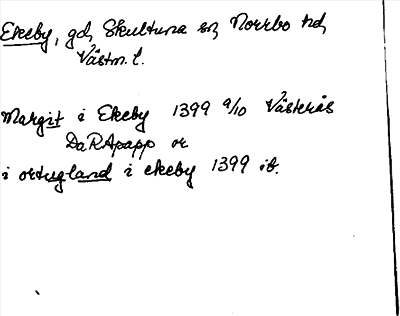 Ekeby, gd, Skultuna sn, Norrbo hd,
Västm. l.
Margit i Ekeby 1399 9/10 Västerås
DaRApapp or
i ortugland i ekeby 1399 ib.